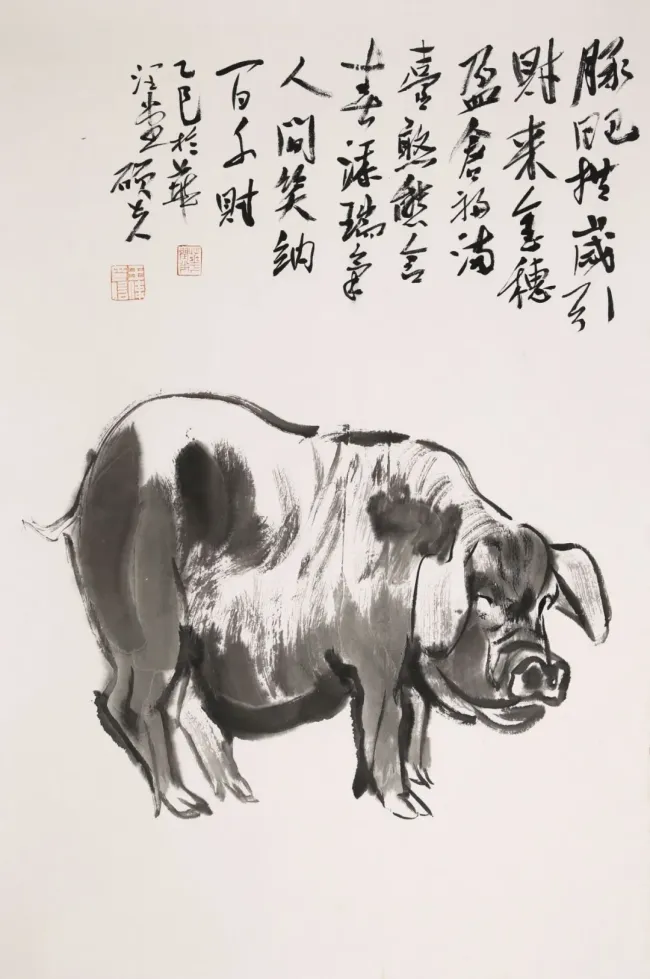 豚肥拱歲引
財來金穗
盈倉福滿
臺憨態含
春添瑞氣
人間笑納
百千財
乙巳於華
堂碩夫